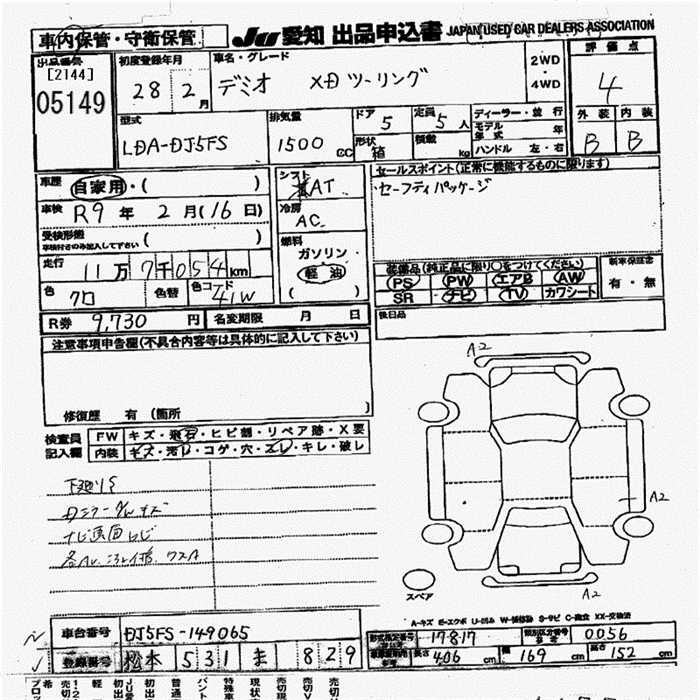 車内保管・守衛保管
JU 愛知 出品申込書 JAPAN USED CAR DEALERS ASSOCIATION
出品番号
[2144]
05149
初度登録年月
28年2月
車名・グレード
デミオ XD ツーリング
2WD
・
4WD
評価点
4
型式
LDA-DJ5FS
排気量
1500 CC
ドア
5
定員
5人
形状
箱
積載
kg
ディーラー・並行
モデル年式 年
ハンドル 左・右
外装 内装
B B
車歴
自家用・( )
車検
R9年2月(16日)
受検形態
車検付きのみ記入して下さい ( )
走行
11万7千054km
色
クロ
色替
色コード
41W
シフト
AT
冷房
AC
燃料
ガソリン
軽油
( )
セールスポイント(正常に機能するものに限ります)
・セーフティパッケージ
装備品(純正品に限り○をつけてください)
PS PW エアB AW
SR ナビ TV カワシート
新車保証書
有・無
R券 9,730円
名変期限 月 日
後日品
注意事項申告欄(不具合内容等は具体的に記入して下さい)
修復歴 有 (箇所 )
検査員
記入欄
FW キズ・飛石・ヒビ割・リペア跡・X要
内装 キズ・汚れ・コゲ・穴・スレ・キレ・破レ
下廻りS
A2
A2
A2
スペア
A-キズ E-エクボ U-凹み W-補修跡 S-サビ C-腐食 XX-交換済
車台番号 DJ5FS-149065
登録番号 松本 531 ま 829
型式指定番号 17817
類別区分番号 0056
長さ 406 cm 幅 169 cm 高さ 152 cm